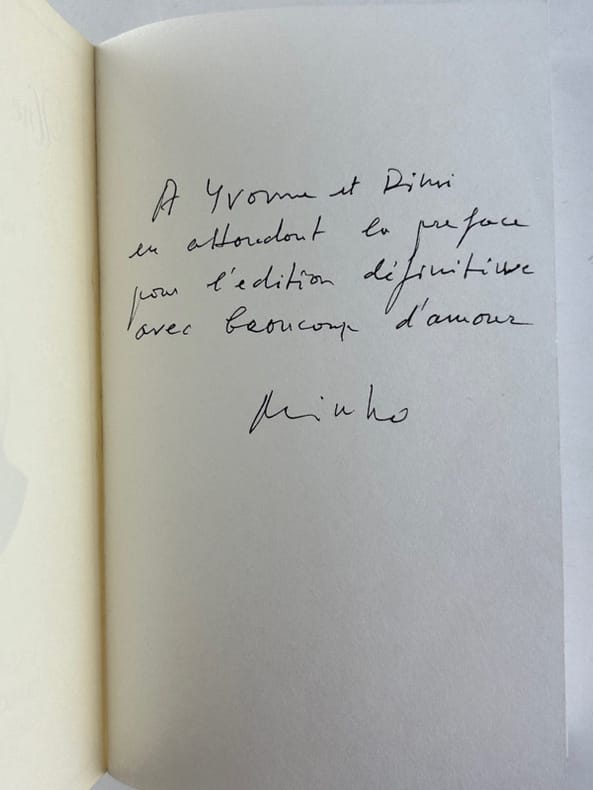 A Yvonne et Dimi
en attendant la preface
pour l'edition définitive
avec beaucoup d'amour